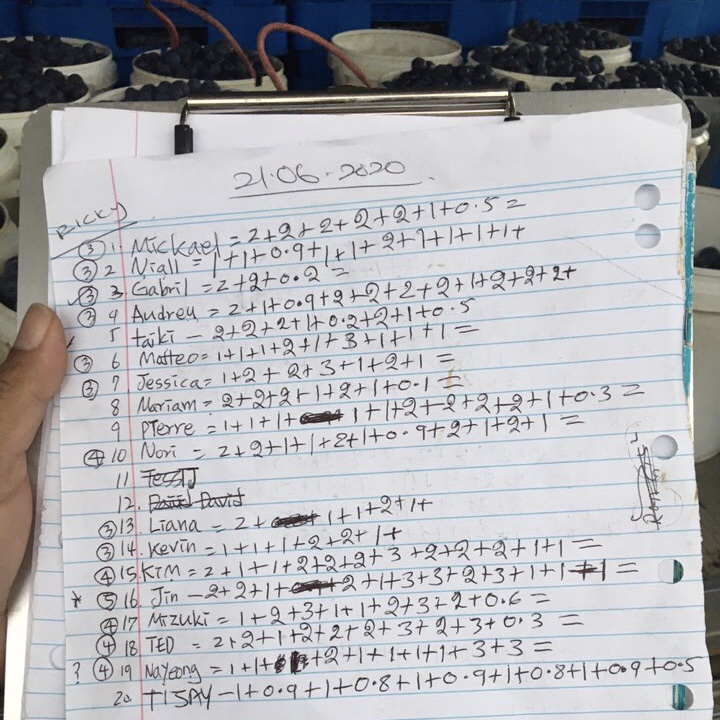 21.06.2020
RICKY
③ 1. Mickael = 2+2+2+2+2+1+0.5=
③ 2 Niall = 1+1+0.9+1+1+2+1+1+1+1+
③ 3 Gabril = 2+2+0.2 =
③ 4 Audrey = 2+1+0.9+2+2+2+2+1+2+2+2+
5 taiki - 2+2+2+1+0.2+2+1+0.5
③ 6 Matteo = 1+1+1+2+1+3+1+1+1=
③ 7 Jessica = 1+2+2+3+1+2+1 =
8 Mariam = 2+2+2+1+2+1+0.1 =
9 PIerre = 1+1+1+ 1+1+2+2+2+2+2+1+0.3 =
④ 10 Nori = 2+2+1+1+2+1+0.9+2+1+2+1 =
11 Tess
12. David David
③ 13. Liana = 2+ 1+1+2+1+
③ 14. Kevin = 1+1+1+2+2+1+
④ 15 KIM = 2+1+1+2+2+2+3+2+2+2+1+1 =
* ⑤ 16. Jin - 2+2+1+ 2+1+3+3+2+3+1+1+1 =
④ 17 Mizuki = 1+2+3+1+1+2+3+2+0.6 =
④ 18 TED = 2+2+1+2+2+2+3+2+3+0.3 =
? ④ 19 Nayeong = 1+1+ +2+1+1+1+1+3+3 =
20 TISAY - 1+0.9+1+0.8+1+0.9+1+0.8+1+0.9+0.5